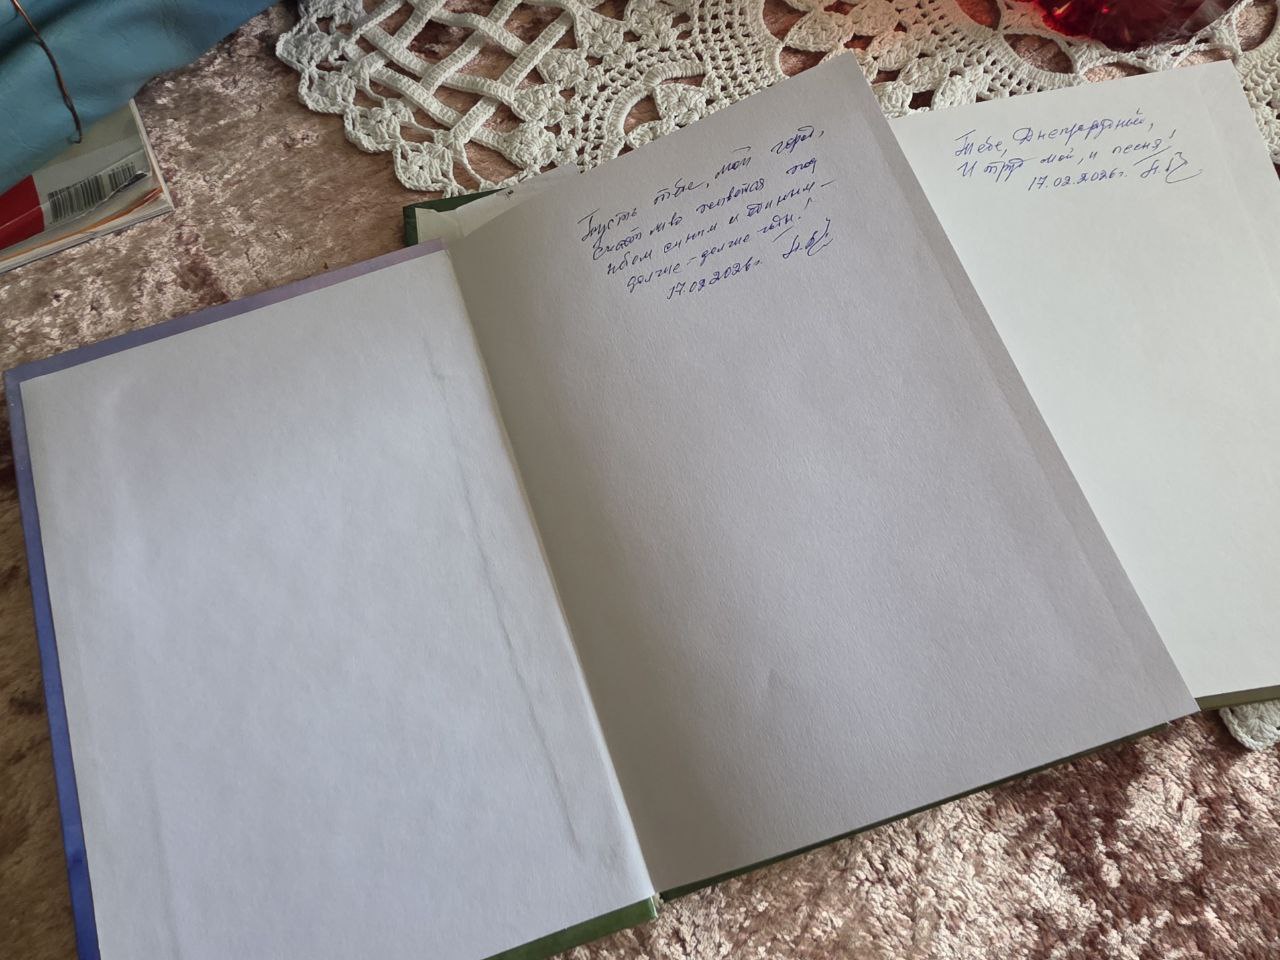 Пусть тебе, мой город,
счастливо живётся под
небом синим и единым –
долгие-долгие годы!
17.02.2026г.
Тебе, Днепрорудный,
И труд мой, и песня!
17.02.2026г.